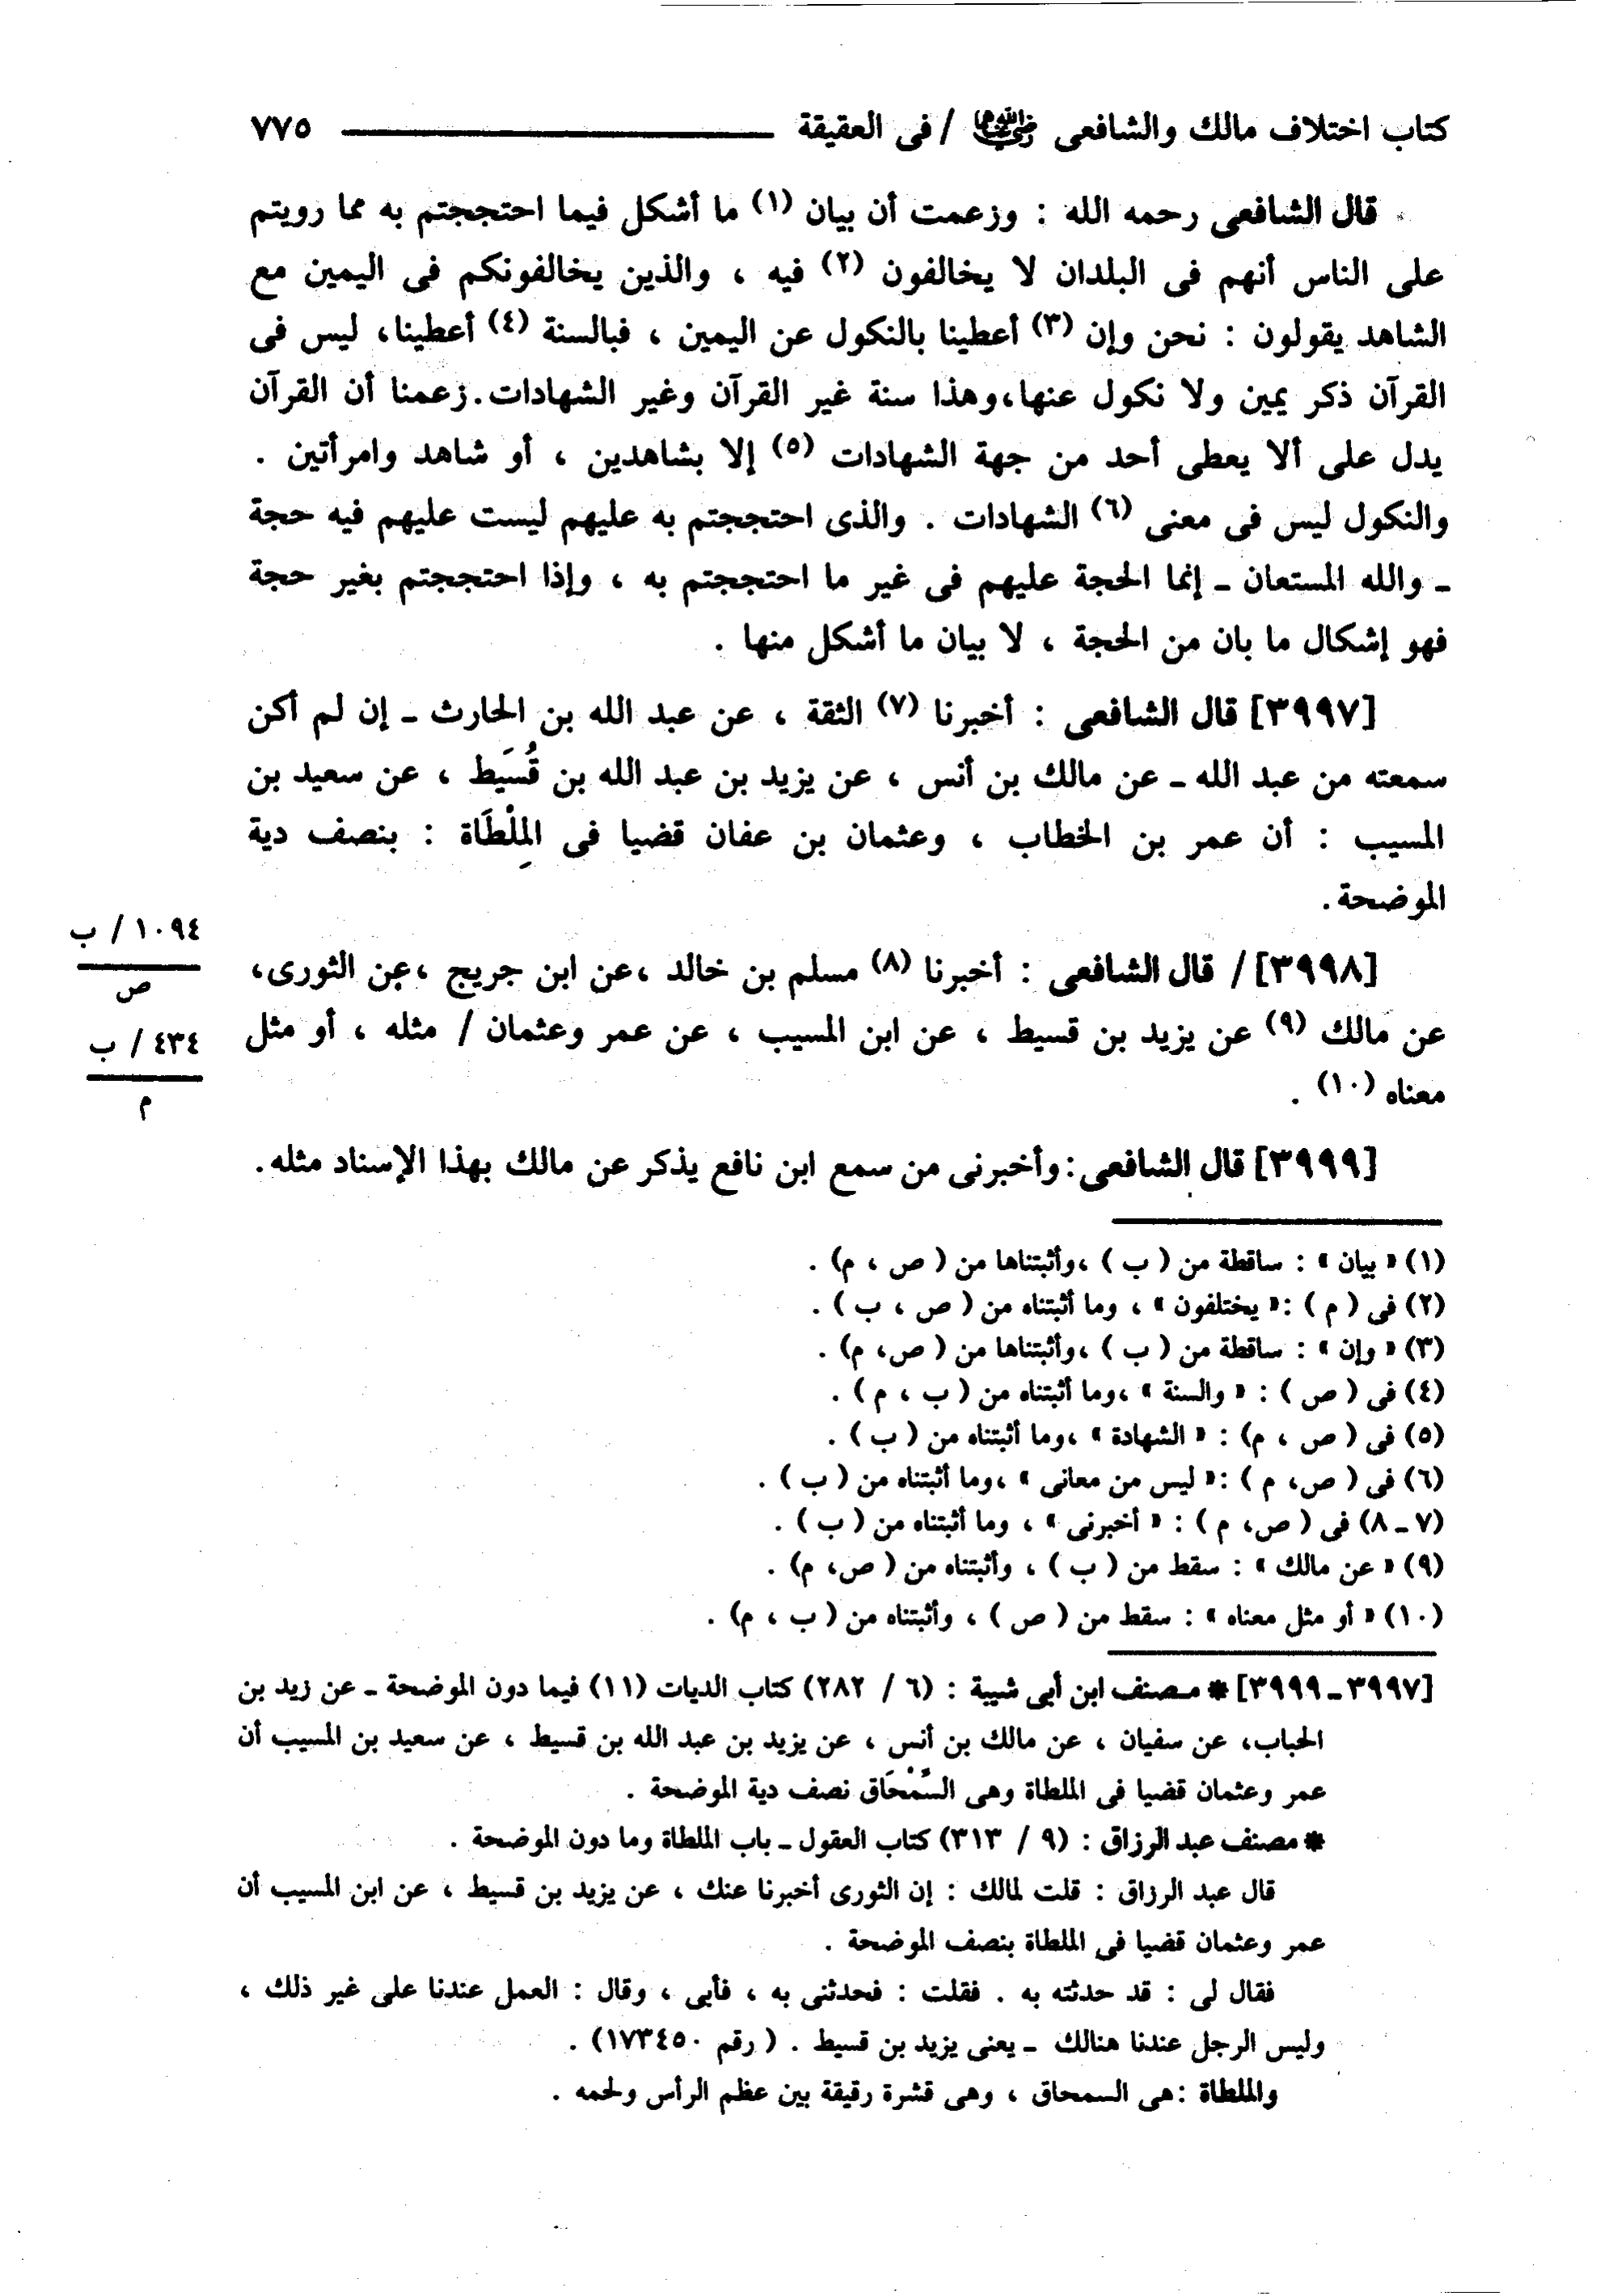 كتاب اختلاف مالك والشافعى رضي الله عنهما / فى العقيقة ــــــــــ ٧٧٥
قال الشافعى رحمه الله : وزعمت أن بيان (١) ما أشكل فيما احتججتم به مما رويتم
على الناس أنهم فى البلدان لا يخالفون (٢) فيه ، والذين يخالفونكم فى اليمين مع
الشاهد يقولون : نحن وإن (٣) أعطينا بالنكول عن اليمين ، فبالسنة (٤) أعطينا، ليس فى
القرآن ذكر يمين ولا نكول عنها،وهذا سنة غير القرآن وغير الشهادات.زعمنا أن القرآن
يدل على ألا يعطى أحد من جهة الشهادات (٥) إلا بشاهدين ، أو شاهد وامرأتين .
والنكول ليس فى معنى (٦) الشهادات . والذى احتججتم به عليهم ليست عليهم فيه حجة
ـ والله المستعان ـ إنما الحجة عليهم فى غير ما احتججتم به ، وإذا احتججتم بغير حجة
فهو إشكال ما بان من الحجة ، لا بيان ما أشكل منها .
[٣٩٩٧] قال الشافعى : أخبرنا (٧) الثقة ، عن عبد الله بن الحارث ـ إن لم أكن
سمعته من عبد الله ـ عن مالك بن أنس ، عن يزيد بن عبد الله بن قُسَيط ، عن سعيد بن
المسيب : أن عمر بن الخطاب ، وعثمان بن عفان قضيا فى المِلْطَاة : بنصف دية
الموضحة.
١٠٩٤ / ب
ص
[٣٩٩٨] / قال الشافعى : أخبرنا (٨) مسلم بن خالد ،عن ابن جريج ،عن الثورى،
عن مالك (٩) عن يزيد بن قسيط ، عن ابن المسيب ، عن عمر وعثمان / مثله ، أو مثل
٤٣٤ / ب
م
معناه (١٠) .
[٣٩٩٩] قال الشافعى : وأخبرنى من سمع ابن نافع يذكر عن مالك بهذا الإسناد مثله.
(١) « بيان » : ساقطة من ( ب ) ،وأثبتناها من ( ص ، م) .
(٢) فى ( م ) :« يختلفون » ، وما أثبتناه من ( ص ، ب ) .
(٣) « وإن » : ساقطة من ( ب ) ،وأثبتناها من ( ص، م) .
(٤) فى ( ص ) : « والسنة » ،وما أثبتناه من ( ب ، م ) .
(٥) فى ( ص ، م) : « الشهادة » ،وما أثبتناه من ( ب ) .
(٦) فى ( ص، م ) :« ليس من معانى » ،وما أثبتناه من ( ب ) .
(٧ ـ ٨) فى ( ص، م ) : « أخبرنى » ، وما أثبتناه من ( ب ) .
(٩) « عن مالك » : سقط من ( ب ) ، وأثبتناه من ( ص، م) .
(١٠) « أو مثل معناه » : سقط من ( ص ) ، وأثبتناه من ( ب ، م) .
[٣٩٩٧ ـ ٣٩٩٩] * مصنف ابن أبى شيبة : (٦ / ٢٨٢) كتاب الديات (١١) فيما دون الموضحة ـ عن زيد بن
الحباب، عن سفيان ، عن مالك بن أنس ، عن يزيد بن عبد الله بن قسيط ، عن سعيد بن المسيب أن
عمر وعثمان قضيا فى الملطاة وهى السِّمْحَاق نصف دية الموضحة .
* مصنف عبد الرزاق : (٩ / ٣١٣) كتاب العقول ـ باب الملطاة وما دون الموضحة .
قال عبد الرزاق : قلت لمالك : إن الثورى أخبرنا عنك ، عن يزيد بن قسيط ، عن ابن المسيب أن
عمر وعثمان قضيا فى الملطاة بنصف الموضحة .
فقال لى : قد حدثته به . فقلت : فحدثنى به ، فأبى ، وقال : العمل عندنا على غير ذلك ،
وليس الرجل عندنا هنالك ـ يعنى يزيد بن قسيط . ( رقم ١٧٣٤٥٠) .
والملطاة :هى السمحاق ، وهى قشرة رقيقة بين عظم الرأس ولحمه .